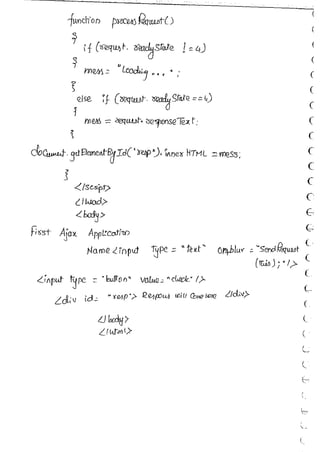 function processRequest()
{
if (request. readyState != 4)
{
mess = "Loading ... ";
}
else if (request. readyState == 4)
{
mess = request. responseText;
}
document. getElementById('resp"). inner HTML = mess;
}
</script>
</head>
<body>
First Ajax Application
Name <input Type = "text" onblur = "SendRequest
(this); " />
<input type = "button" value = "click" />
<div id = "resp"> Respons will Come here </div>
</body>
</html>